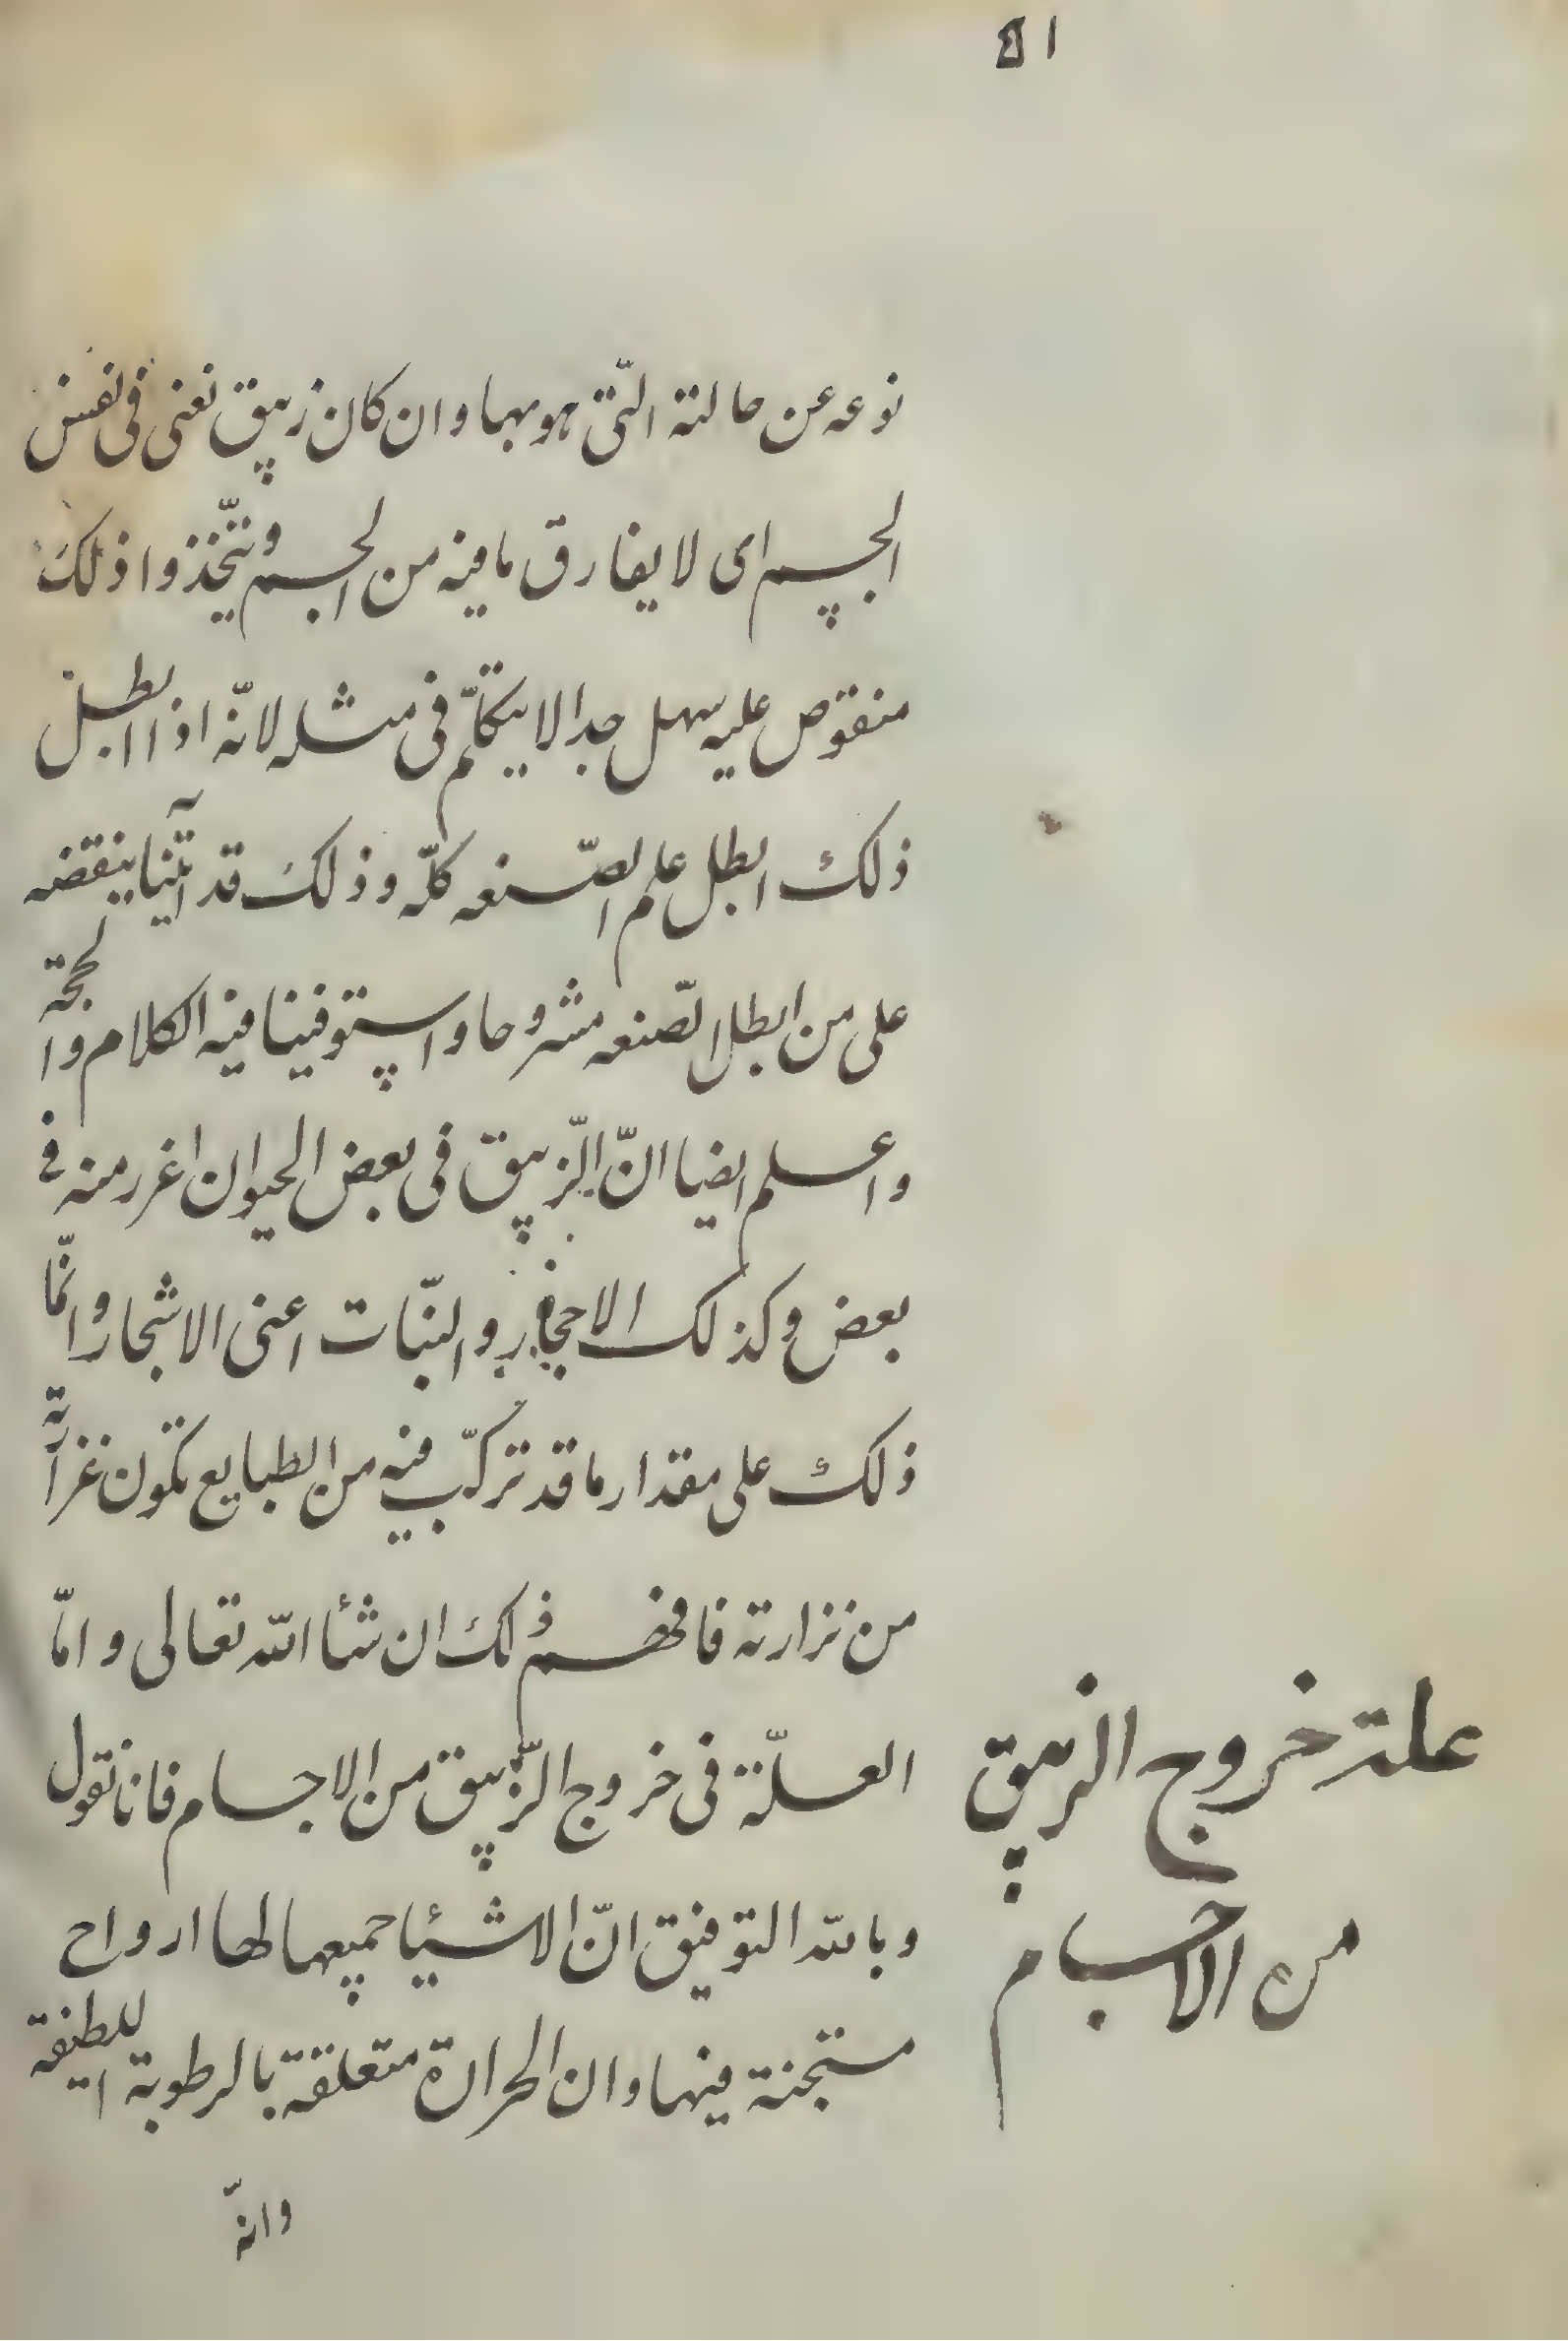 نوعه عن حالته التّى هو بها وان كان زيبق نعنى فى نفس
الجسم اى لا يفارق ما فيه من الجسم ويتّخذوا ذلك
منقوص عليه سهل جدا لا يتكلّم فى مثله لانّه اذا ابطل
ذلك ابطل علم الصّنعه كلّه وذلك قد اتينا ينقضه
على من ابطل الصّنعه مشروحا واستوفينا فيه الكلام والحجة
واعلم ايضا انّ الزّيبق فى بعض الحيوان اغرر منه فى
بعض وكذلك الاحجار والنّبات اعنى الاشجار وانّما
ذلك على مقدار ما قد تركّب فيه من الطبايع تكون غزارته
من نزارته فافهم ذلك ان شئا الله تعالى وامّا
العلّة فى خروج الزّيبق من الاجسام فانا نقول
وبالله التوفيق انّ الاشيئا جميعها لها ارواح
مستجنة فيها وان الحرارة متعلقة بالرطوبة اللطيفة
وانّه
علة خروج الزيبق
من الاجسام